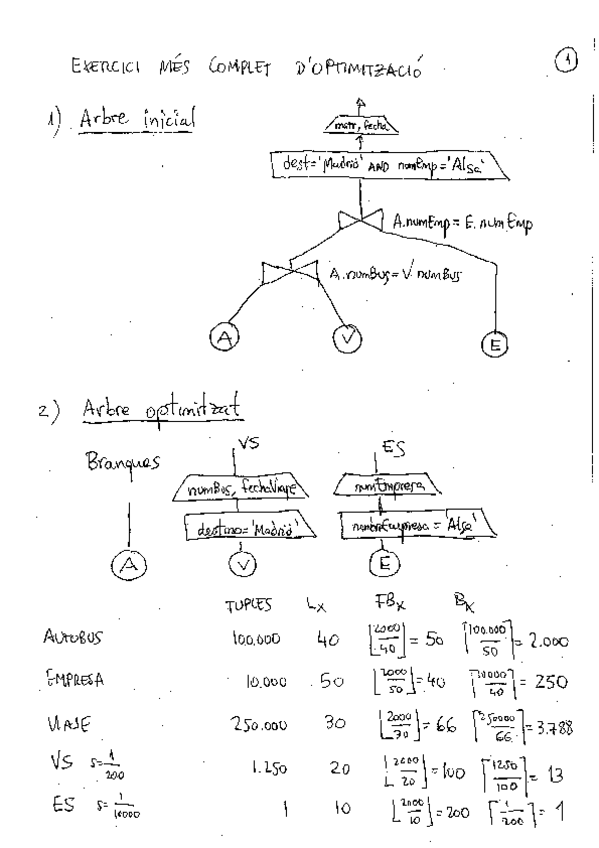 EXERCICI MÉS COMPLET D'OPTIMITZACIÓ
1
1) Arbre inicial
matr, fecha
dest='Madrid' AND nomEmp='Alsa'
A.numEmp = E.numEmp
A.numBus = V.numBus
A V E
2) Arbre optimitzat
VS ES
Branques
numBus, fechaViaje numEmpresa
destino='Madrid' nombreEmpresa = 'Alsa'
A V E
TUPLES Lx FBx Bx
AUTOBUS 100.000 40 ⌊2000/40⌋ = 50 ⌈100.000/50⌉ = 2.000
EMPRESA 10.000 50 ⌊2000/50⌋ = 40 ⌈10000/40⌉ = 250
VIAJE 250.000 30 ⌊2000/30⌋ = 66 ⌈250000/66⌉ = 3.788
VS s=1/200 1.250 20 ⌊2000/20⌋ = 100 ⌈1250/100⌉ = 13
ES s=1/10000 1 10 ⌊2000/10⌋ = 200 ⌈1/200⌉ = 1